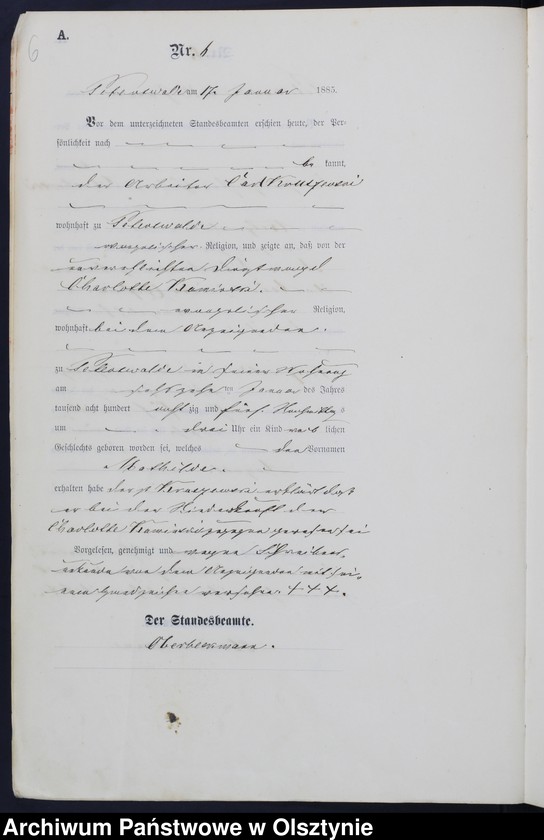 6
A.
Nr. 6
Peterswalde am 17. Januar 1885.
Vor dem unterzeichneten Standesbeamten erschien heute, der Per-
sönlichkeit nach
be kannt,
der Arbeiter Carl
wohnhaft zu Peterswalde
evangelischer Religion, und zeigte an, daß von der
unverehelichten Dienstmagd
Charlotte Kaminski.
evangelischer Religion,
wohnhaft bei dem Anzeigenden.
zu Peterswalde in seiner Wohnung
am sechszehn ten Januar des Jahres
tausend acht hundert acht zig und fünf Nachmittags
um drei Uhr ein Kind weib lichen
Geschlechts geboren worden sei, welches den Vornamen
Mathilde.
erhalten habe der erklärt daß
er bei der Niederkunft der
Charlotte Kaminski zugegen gewesen sei
Vorgelesen, genehmigt und wegen Schreibens-
unkunde von dem Anzeigenden mit sei-
nem Handzeichen versehen. +++.
Der Standesbeamte.
Archiwum Państwowe w Olsztynie